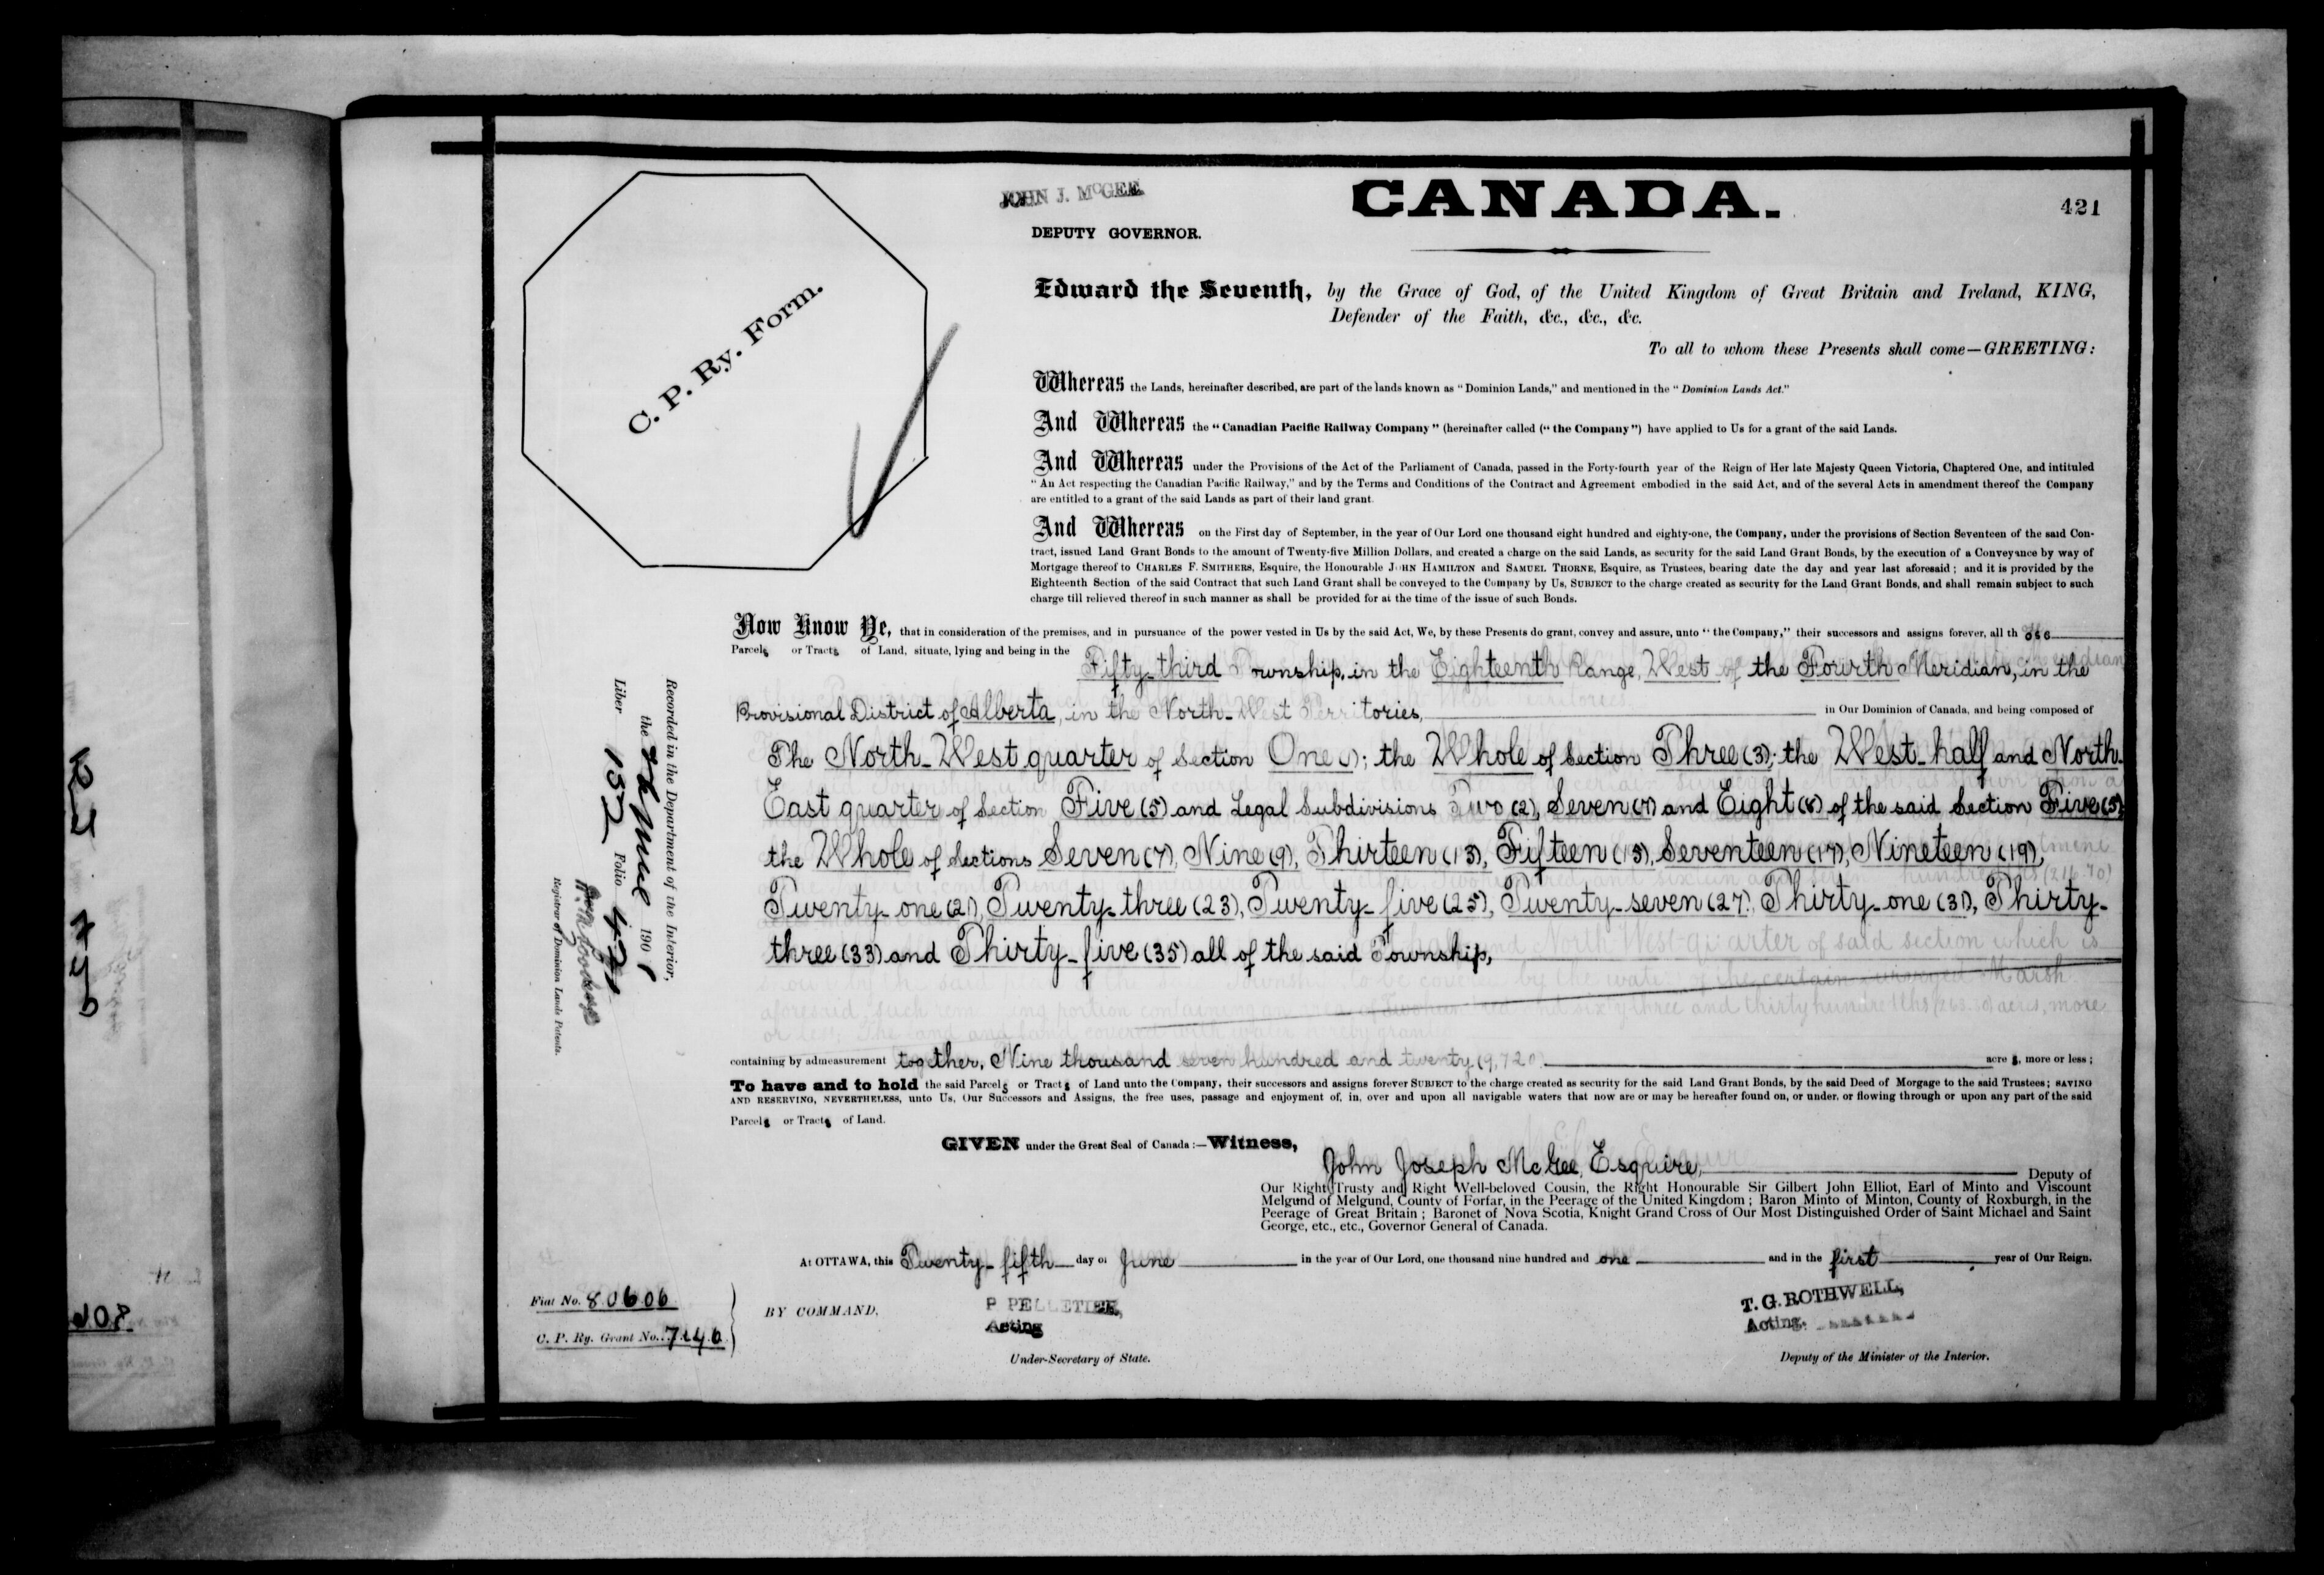 JOHN J. McGEE
DEPUTY GOVERNOR.
CANADA.
421
C. P. Ry. Form.
Edward the Seventh, by the Grace of God, of the United Kingdom of Great Britain and Ireland, KING,
Defender of the Faith, &c., &c., &c.
To all to whom these Presents shall come—GREETING:
Whereas the Lands, hereinafter described, are part of the lands known as "Dominion Lands," and mentioned in the "Dominion Lands Act."
And Whereas the "Canadian Pacific Railway Company" (hereinafter called ("the Company") have applied to Us for a grant of the said Lands.
And Whereas under the Provisions of the Act of the Parliament of Canada, passed in the Forty-fourth year of the Reign of Her late Majesty Queen Victoria, Chaptered One, and intituled
"An Act respecting the Canadian Pacific Railway," and by the Terms and Conditions of the Contract and Agreement embodied in the said Act, and of the several Acts in amendment thereof the Company
are entitled to a grant of the said Lands as part of their land grant.
And Whereas on the First day of September, in the year of Our Lord one thousand eight hundred and eighty-one, the Company, under the provisions of Section Seventeen of the said Con-
tract, issued Land Grant Bonds to the amount of Twenty-five Million Dollars, and created a charge on the said Lands, as security for the said Land Grant Bonds, by the execution of a Conveyance by way of
Mortgage thereof to CHARLES F. SMITHERS, Esquire, the Honourable JOHN HAMILTON and SAMUEL THORNE, Esquire, as Trustees, bearing date the day and year last aforesaid; and it is provided by the
Eighteenth Section of the said Contract that such Land Grant shall be conveyed to the Company by Us, SUBJECT to the charge created as security for the Land Grant Bonds, and shall remain subject to such
charge till relieved thereof in such manner as shall be provided for at the time of the issue of such Bonds.
Now Know Ye, that in consideration of the premises, and in pursuance of the power vested in Us by the said Act, We, by these Presents do grant, convey and assure, unto "the Company," their successors and assigns forever, all those
Parcels or Tracts of Land, situate, lying and being in the Fifty-third Township, in the Eighteenth Range, West of the Fourth Meridian, in the
Provisional District of Alberta, in the North-West Territories, in Our Dominion of Canada, and being composed of
The North-West quarter of Section One (1); the Whole of Section Three (3); the West-half and North-
East quarter of Section Five (5) and Legal Subdivisions Two (2), Seven (7) and Eight (8) of the said Section Five (5);
the Whole of Sections Seven (7), Nine (9), Thirteen (13), Fifteen (15), Seventeen (17), Nineteen (19),
Twenty-one (21), Twenty-three (23), Twenty-five (25), Twenty-seven (27), Thirty-one (31), Thirty-
three (33) and Thirty-five (35) all of the said Township,
containing by admeasurement together, Nine thousand seven hundred and twenty (9,720) acres, more or less;
To have and to hold the said Parcels or Tracts of Land unto the Company, their successors and assigns forever SUBJECT to the charge created as security for the said Land Grant Bonds, by the said Deed of Morgage to the said Trustees; SAVING
AND RESERVING, NEVERTHELESS, unto Us, Our Successors and Assigns, the free uses, passage and enjoyment of, in, over and upon all navigable waters that now are or may be hereafter found on, or under, or flowing through or upon any part of the said
Parcels or Tracts of Land.
GIVEN under the Great Seal of Canada:—Witness,
John Joseph McGee, Esquire, Deputy of
Our Right Trusty and Right Well-beloved Cousin, the Right Honourable Sir Gilbert John Elliot, Earl of Minto and Viscount
Melgund of Melgund, County of Forfar, in the Peerage of the United Kingdom; Baron Minto of Minton, County of Roxburgh, in the
Peerage of Great Britain; Baronet of Nova Scotia, Knight Grand Cross of Our Most Distinguished Order of Saint Michael and Saint
George, etc., etc., Governor General of Canada.
At OTTAWA, this Twenty-fifth day of June in the year of Our Lord, one thousand nine hundred and one and in the first year of Our Reign.
Fiat No. 80606
C. P. Ry. Grant No. 7140
BY COMMAND,
P PELLETIER,
Acting
Under-Secretary of State.
T. G. ROTHWELL,
Acting
Deputy of the Minister of the Interior.
Recorded in the Department of the Interior,
the June 1901
Liber 152 Folio 421
Registrar of Dominion Lands Patents.